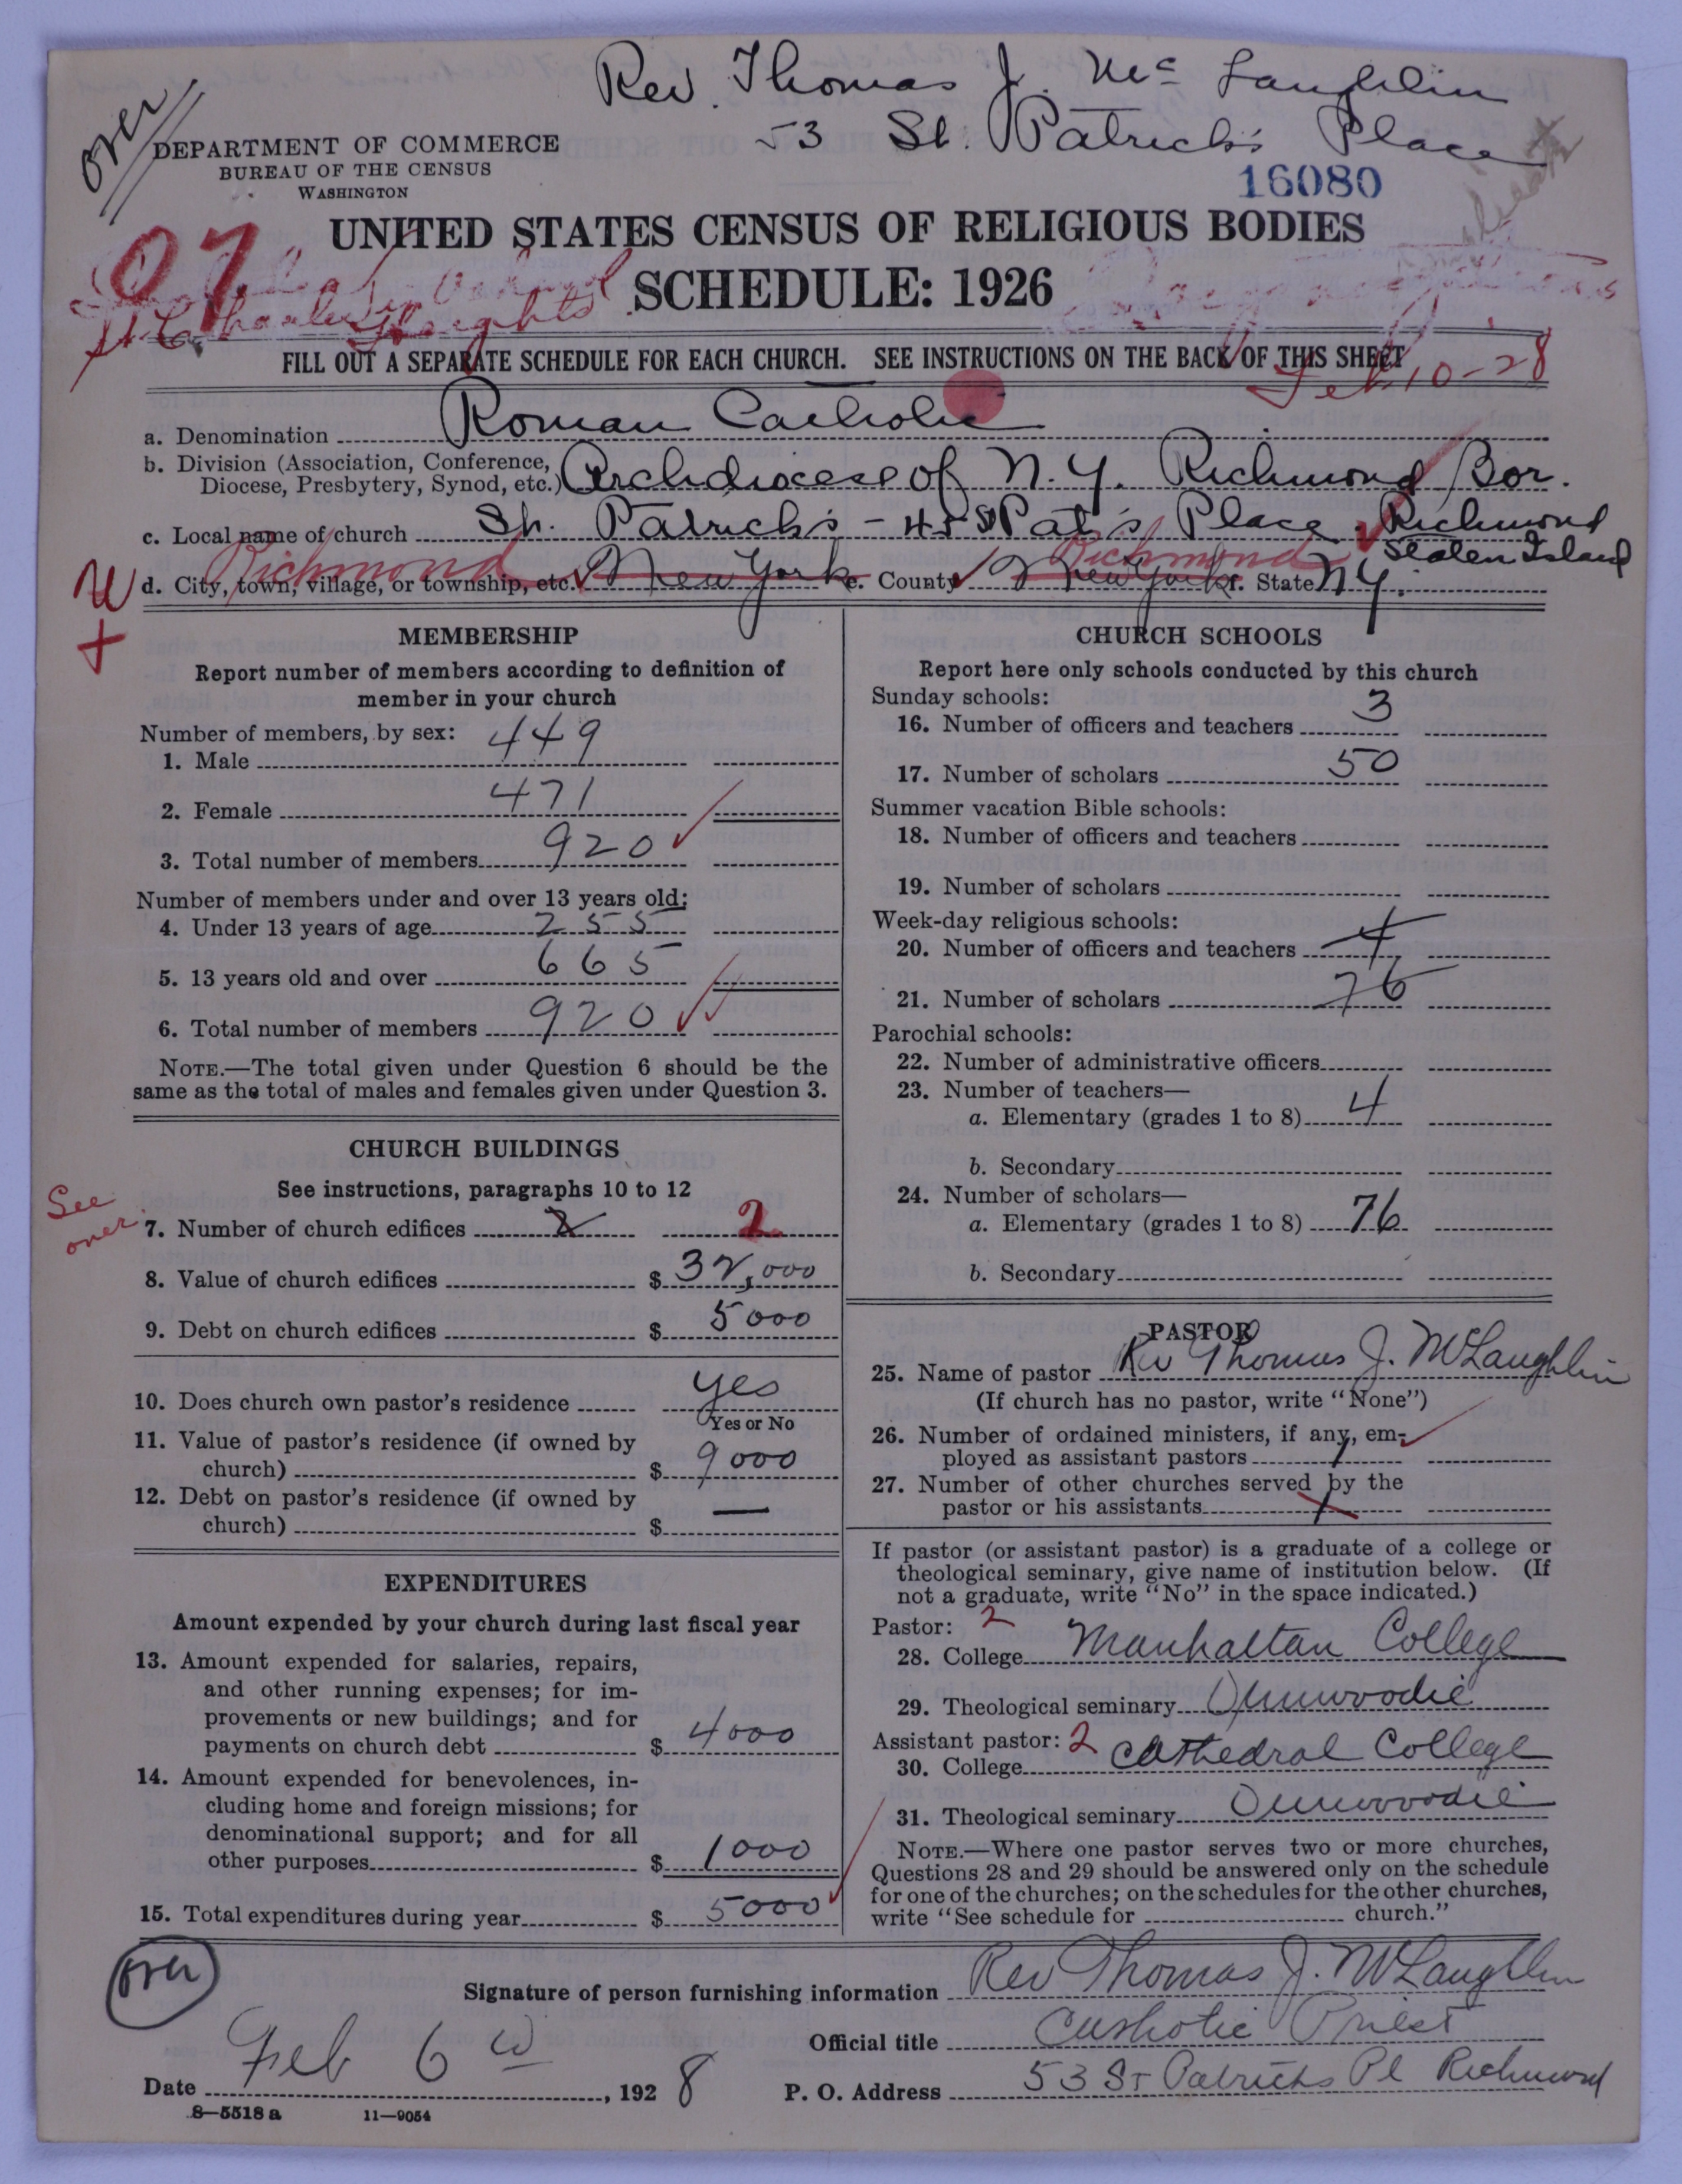 Rev. Thomas J. McLaughlin
over
53 St. Patrick's Place
DEPARTMENT OF COMMERCE
BUREAU OF THE CENSUS
WASHINGTON
16080
UNITED STATES CENSUS OF RELIGIOUS BODIES
97
SCHEDULE: 1926
St. Charles Heights
FILL OUT A SEPARATE SCHEDULE FOR EACH CHURCH. SEE INSTRUCTIONS ON THE BACK OF THIS SHEET
Feb 10-28
a. Denomination Roman Catholic
b. Division (Association, Conference, Diocese, Presbytery, Synod, etc.) Archdiocese of N.Y. Richmond Bor.
c. Local name of church St. Patrick's - 45 St Pat's Place. Richmond
Staten Island
Richmond Richmond
W d. City, town, village, or township, etc. New York e. County New York f. State N.Y.
+
MEMBERSHIP
Report number of members according to definition of
member in your church
Number of members, by sex:
1. Male 449
2. Female 471
3. Total number of members 920
Number of members under and over 13 years old:
4. Under 13 years of age 255
5. 13 years old and over 665
6. Total number of members 920
NOTE.—The total given under Question 6 should be the
same as the total of males and females given under Question 3.
CHURCH BUILDINGS
See instructions, paragraphs 10 to 12
See over
7. Number of church edifices 2
8. Value of church edifices $ 32,000
9. Debt on church edifices $ 5000
10. Does church own pastor's residence yes
Yes or No
11. Value of pastor's residence (if owned by
church) $ 9000
12. Debt on pastor's residence (if owned by
church) $ —
EXPENDITURES
Amount expended by your church during last fiscal year
13. Amount expended for salaries, repairs,
and other running expenses; for im-
provements or new buildings; and for
payments on church debt $ 4000
14. Amount expended for benevolences, in-
cluding home and foreign missions; for
denominational support; and for all
other purposes $ 1000
15. Total expenditures during year $ 5000
CHURCH SCHOOLS
Report here only schools conducted by this church
Sunday schools:
16. Number of officers and teachers 3
17. Number of scholars 50
Summer vacation Bible schools:
18. Number of officers and teachers
19. Number of scholars
Week-day religious schools:
20. Number of officers and teachers 4
21. Number of scholars 76
Parochial schools:
22. Number of administrative officers
23. Number of teachers—
a. Elementary (grades 1 to 8) 4
b. Secondary
24. Number of scholars—
a. Elementary (grades 1 to 8) 76
b. Secondary
PASTOR
25. Name of pastor Rev Thomas J. McLaughlin
(If church has no pastor, write "None")
26. Number of ordained ministers, if any, em-
ployed as assistant pastors 1
27. Number of other churches served by the
pastor or his assistants 1
If pastor (or assistant pastor) is a graduate of a college or
theological seminary, give name of institution below. (If
not a graduate, write "No" in the space indicated.)
Pastor: 2
28. College Manhattan College
29. Theological seminary Dunwoodie
Assistant pastor: 2
30. College Cathedral College
31. Theological seminary Dunwoodie
NOTE.—Where one pastor serves two or more churches,
Questions 28 and 29 should be answered only on the schedule
for one of the churches; on the schedules for the other churches,
write "See schedule for church."
over
Signature of person furnishing information Rev Thomas J. McLaughlin
Official title Catholic Priest
Date Feb 6, 1928
P. O. Address 53 St Patricks Pl Richmond
8—5518 a 11—9054